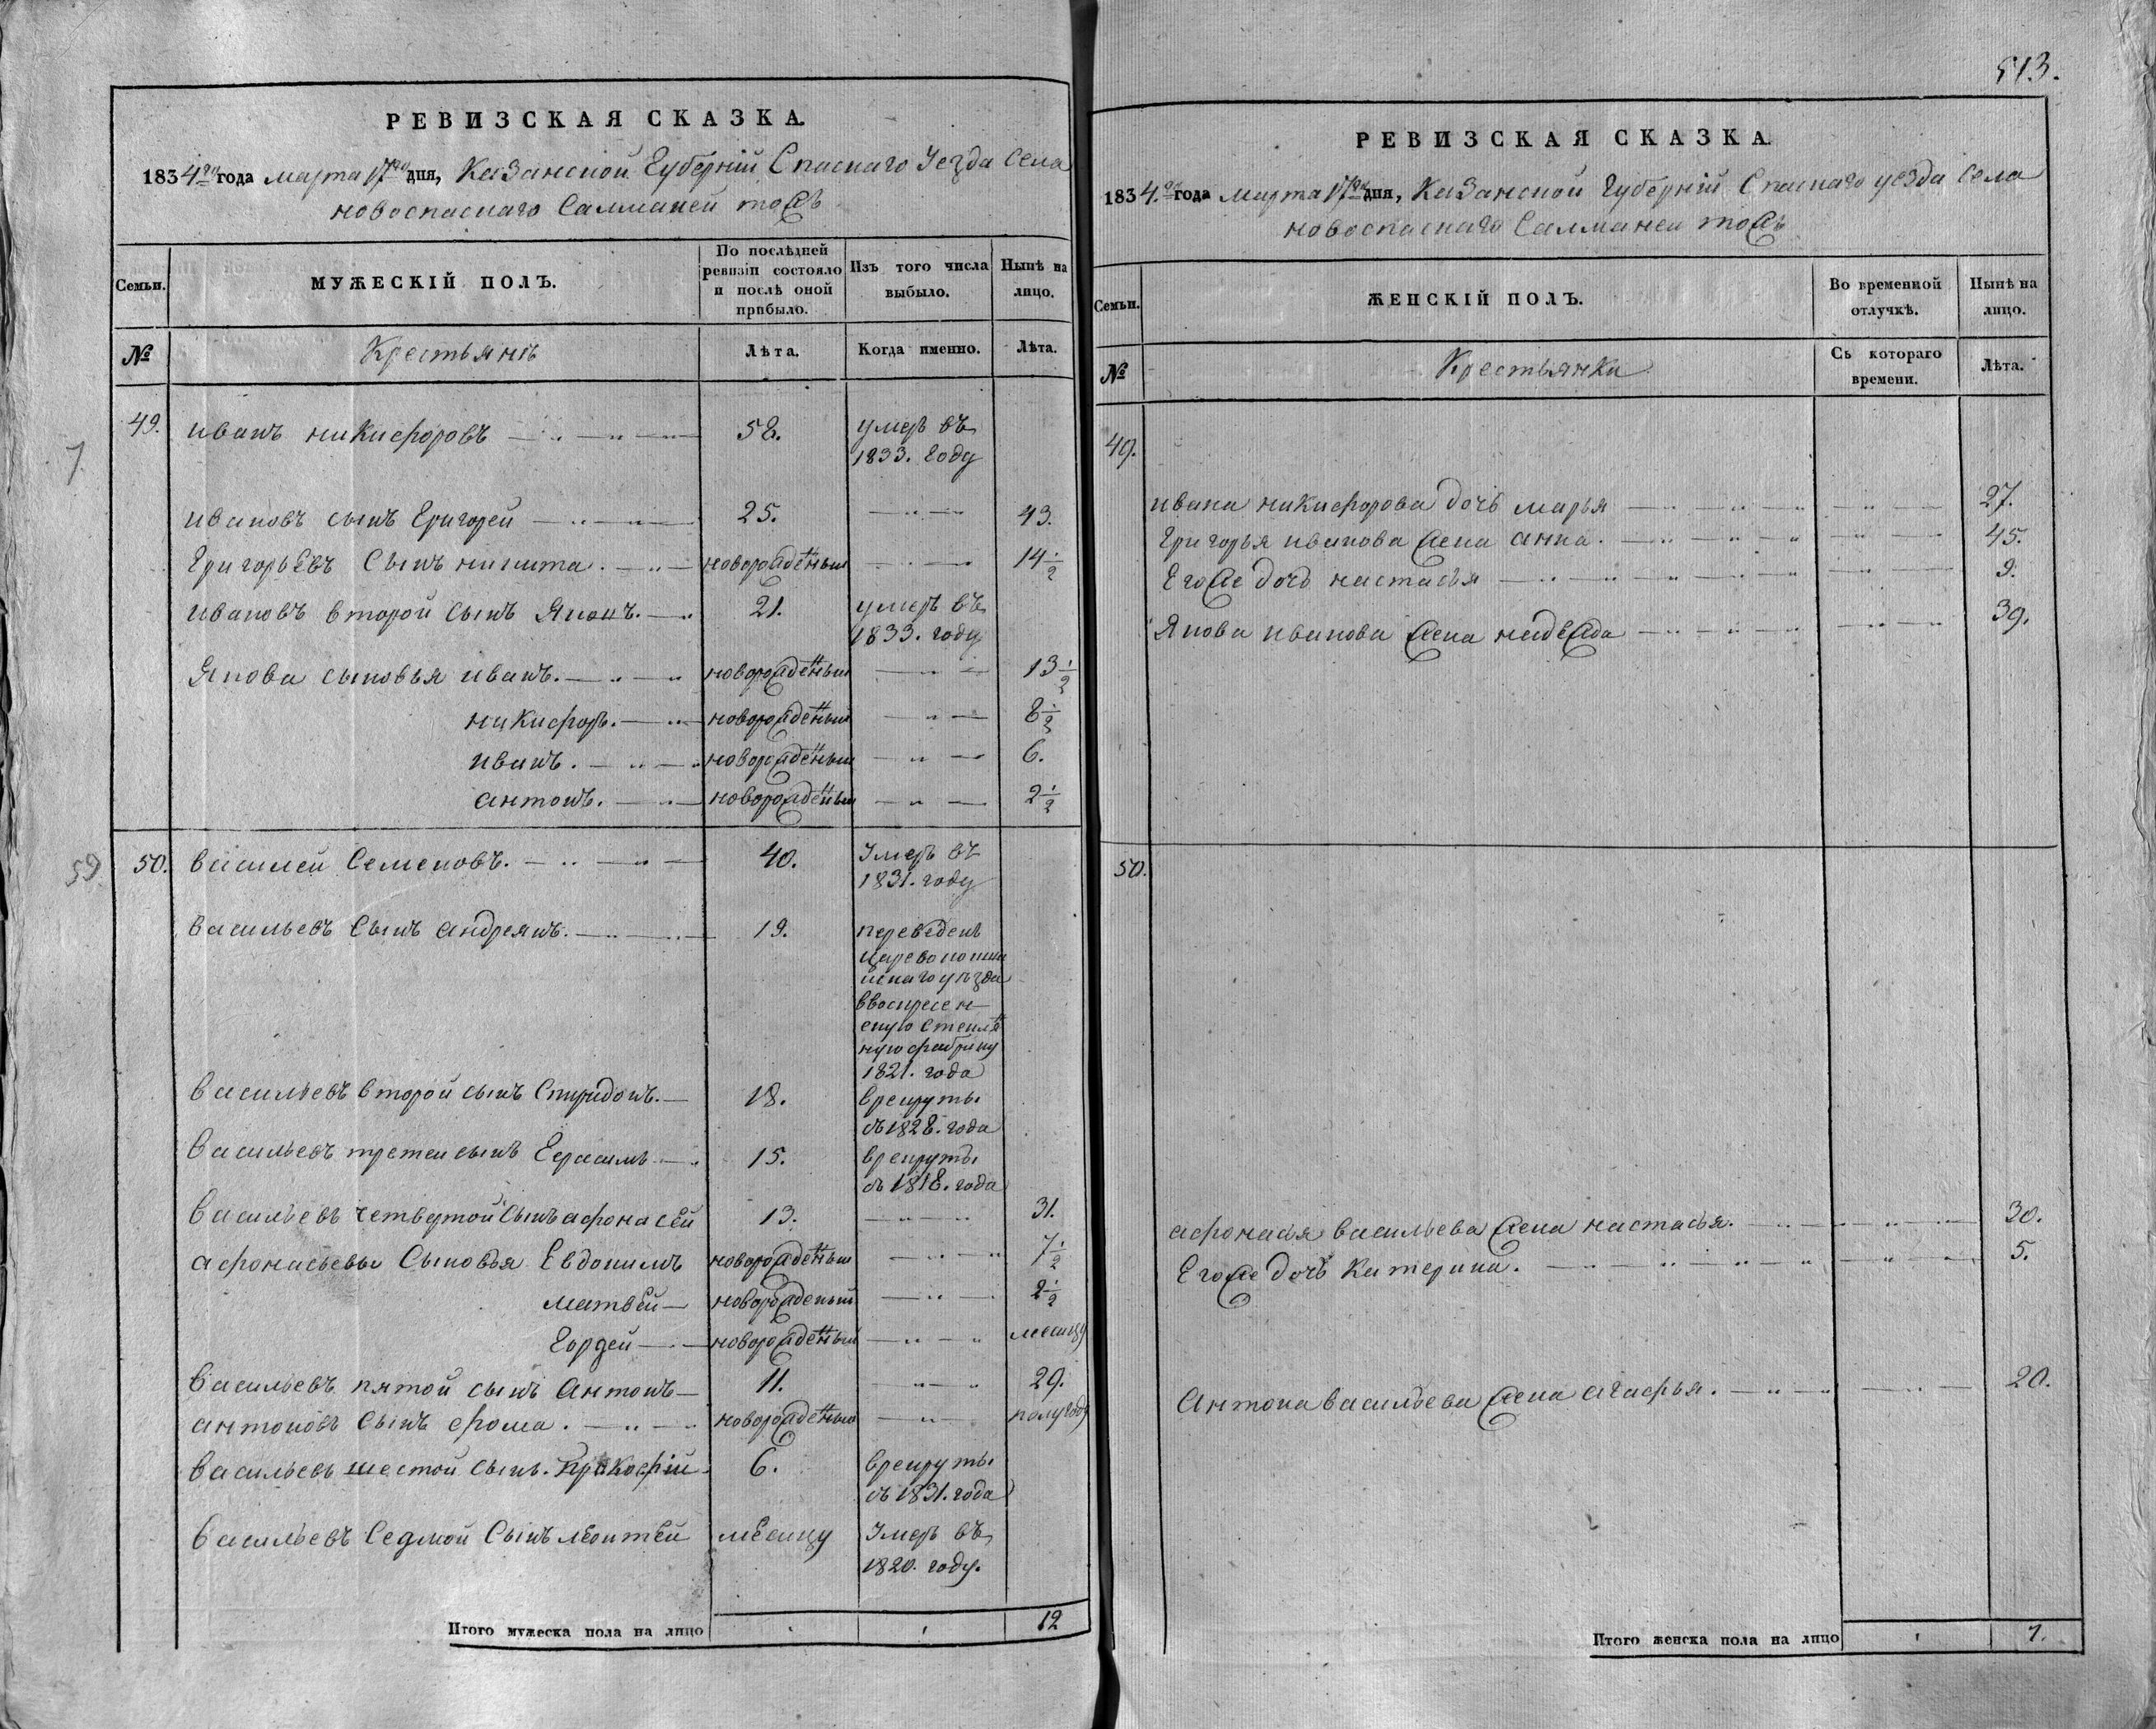 РЕВИЗСКАЯ СКАЗКА.
1834го года марта 17го дня, Казанской Губерній Спаскаго Уезда Села
новоспаскаго Салманеи тожъ
Семьи.
МУЖЕСКІЙ ПОЛЪ.
По послѣдней ревизіи состояло и послѣ оной прибыло.
Изъ того числа выбыло.
Нынѣ на лицо.
№
Крестьянѣ
Лѣта.
Когда именно.
Лѣта.
49. иванъ никифоровъ 58. умеръ въ
1833. году
ивановъ сынъ Григорей 25. 43.
Григорьевъ Сынъ никита. новорожденныи 14 1/2
ивановъ второй сынъ Яковъ. 21. умеръ въ
1833. году
Якова сыновья иванъ. новорожденныи 13 1/2
никифоръ. новорожденныи 8 1/2
иванъ. новорожденныи 6.
антонъ. новорожденныи 2 1/2
59 50. василеи Семеновъ. 40. Умеръ въ
1831. году
васильевъ Сынъ андреянъ. 19. переведенъ
царевококшаи
искаго уѣзда
ввоскресен-
скую стеклян
ную фабрику
1821. года
васильевъ второй сынъ Спиридонъ. 18. врекруты
съ 1828. года
васильевъ третеи сынъ Герасимъ 15. врекруты
съ 1818. года
васильевъ четвертой Сынъ афонасей 13. 31.
афонасьевы Сыновья Евдокимъ новорожденныи 7 1/2
матвѣй новорожденый 2 1/2
Гордеи новорожденный месяцу
васильевъ пятой сынъ Антонъ 11. 29.
антоновъ Сынъ фома. новорожденныи полугоду
васильевъ шестой сынъ. Прокофій 6. врекруты
съ 1831. года
васильевъ Седмой Сынъ леонтеи месяцу Умеръ въ
1820. году.
Итого мужеска пола на лицо 12
513.
РЕВИЗСКАЯ СКАЗКА
1834.го года Марта 17го дня, Казанской Губерній Спаскаго уезда Села
новоспаскаго Салманеи тожъ
Семьи.
ЖЕНСКІЙ ПОЛЪ.
Во временной отлучкѣ.
Нынѣ на лицо.
№
Крестьянки
Съ котораго времени.
Лѣта.
49.
ивана никифорова дочь марья 27.
Григорья иванова жена анна. 45.
Егоже дочь настасья 9.
Якова иванова жена надежда 39.
50.
афонасья васильева жена настасья. 30.
Егоже дочь катерина. 5.
Антона васильева жена агафья. 20.
Итого женска пола на лицо 7.